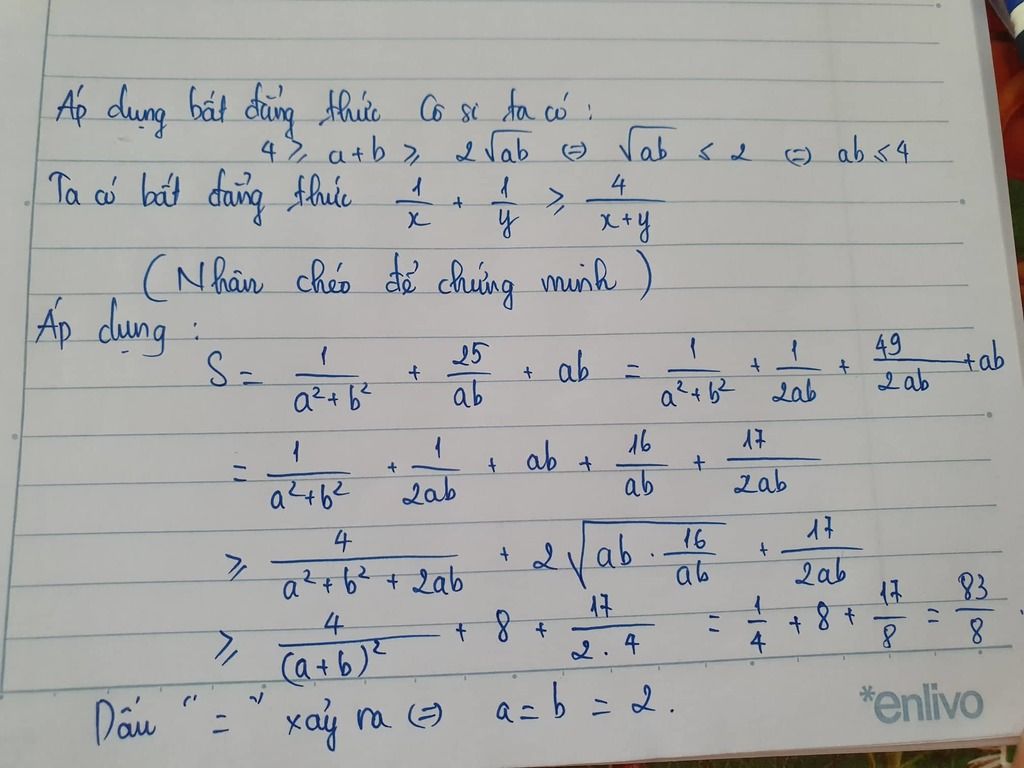 Áp dụng bất đẳng thức Cô si ta có :
4 ≥ a+b ≥ 2√ab ⇔ √ab ≤ 2 ⇔ ab ≤ 4
Ta có bất đẳng thức 1/x + 1/y ≥ 4/(x+y)
(Nhân chéo để chứng minh)
Áp dụng :
S = 1/(a²+b²) + 25/ab + ab = 1/(a²+b²) + 1/2ab + 49/2ab + ab
= 1/(a²+b²) + 1/2ab + ab + 16/ab + 17/2ab
≥ 4/(a²+b²+2ab) + 2√(ab · 16/ab) + 17/2ab
≥ 4/(a+b)² + 8 + 17/(2·4) = 1/4 + 8 + 17/8 = 83/8 .
Dấu "=" xảy ra ⇔ a = b = 2 .
*enlivo